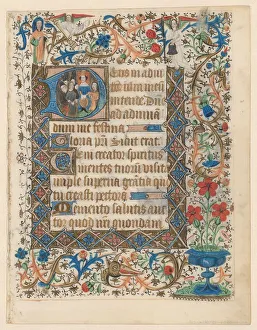 Deus in adiu
torium meum
intende Dn
ad adiuua
dum me festina
Gloria pri Sicut erat
Veni creator spiritus
mentes tuorum visita
imple superna gratia que
tu creasti pectora
Memento salutis auc
tor quod nri quondam